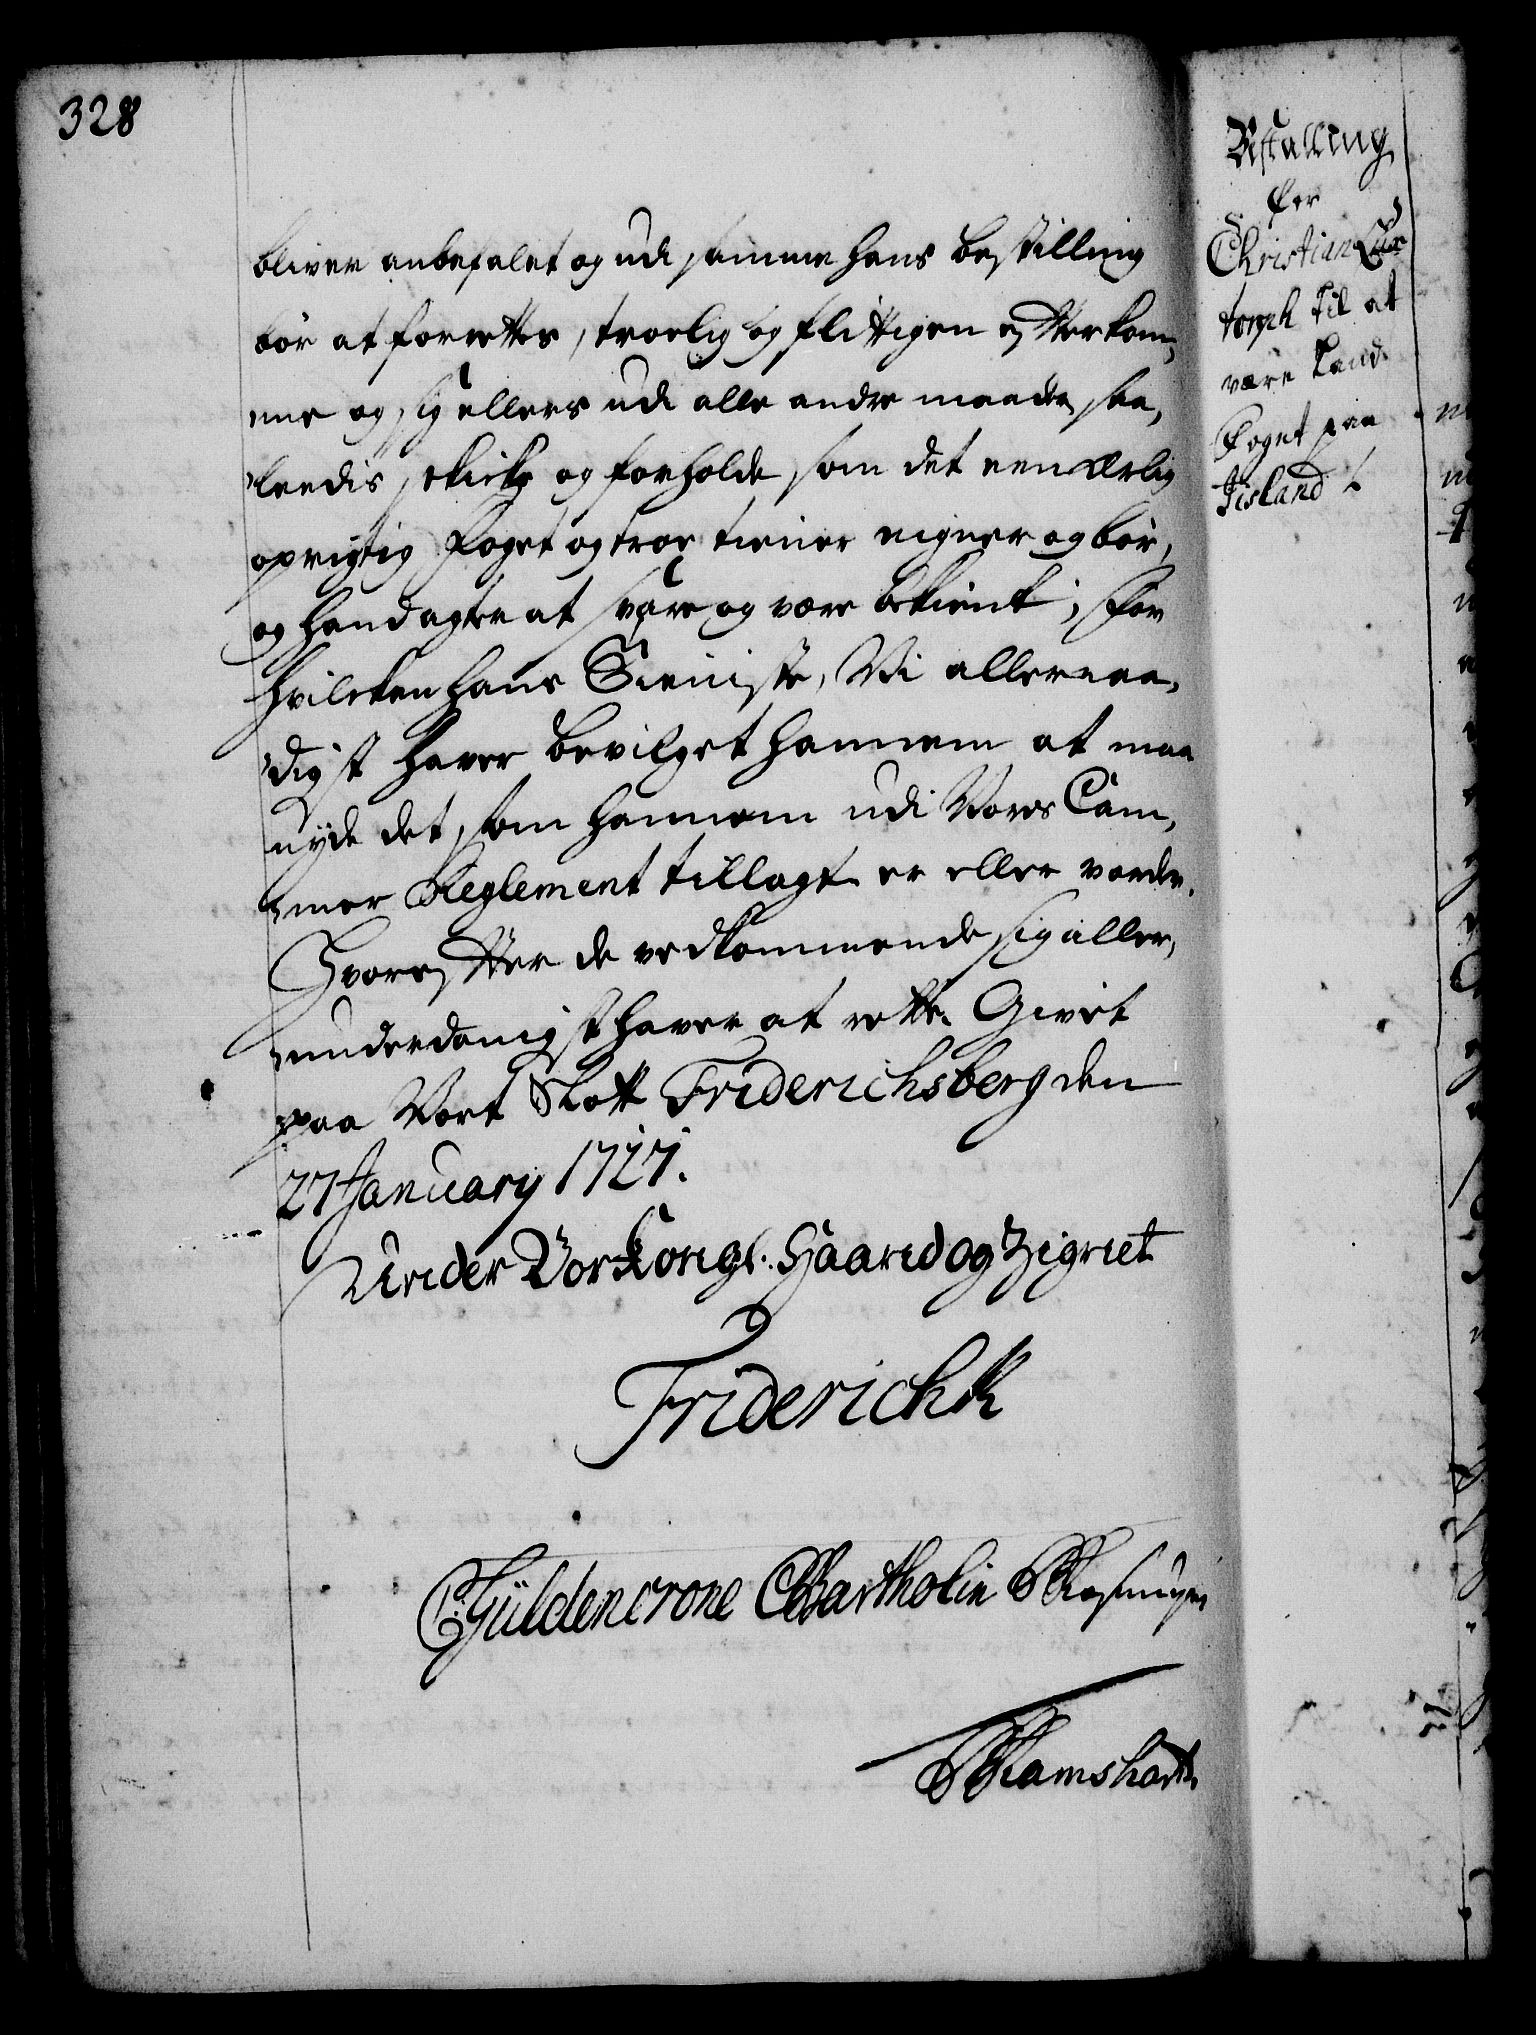 328
bliver anbefalet og udi samme hans bestilling
bör at forrettes, troelig og flittigen efterkom,
me og sig ellers udi alle andre maader saa,
leedis skicke og forholde som det een ærlig
oprigtig Foget og troe tiener eigner og bör,
og hand agter at svare og være bekient; For
hvilcken hans Tieniste, Vi allernaa,
digst haver bevilget hannem at maa
nyde det, som hannem udi Vores Cam,
mer Reglement tillagt er eller vorder.
Hvorefter de vedkommende sig aller,
underdanigst haver at rette. Givet
paa Vort Slott Friderichsberg den
27 January 1727.
Under Vor Kongl. Haand og Zignet
Friderich R
C Güldencrone C Bartholin
Ramshart
Bestalling
for
Christian Lux
torph til at
være Land
Foget paa
Jisland